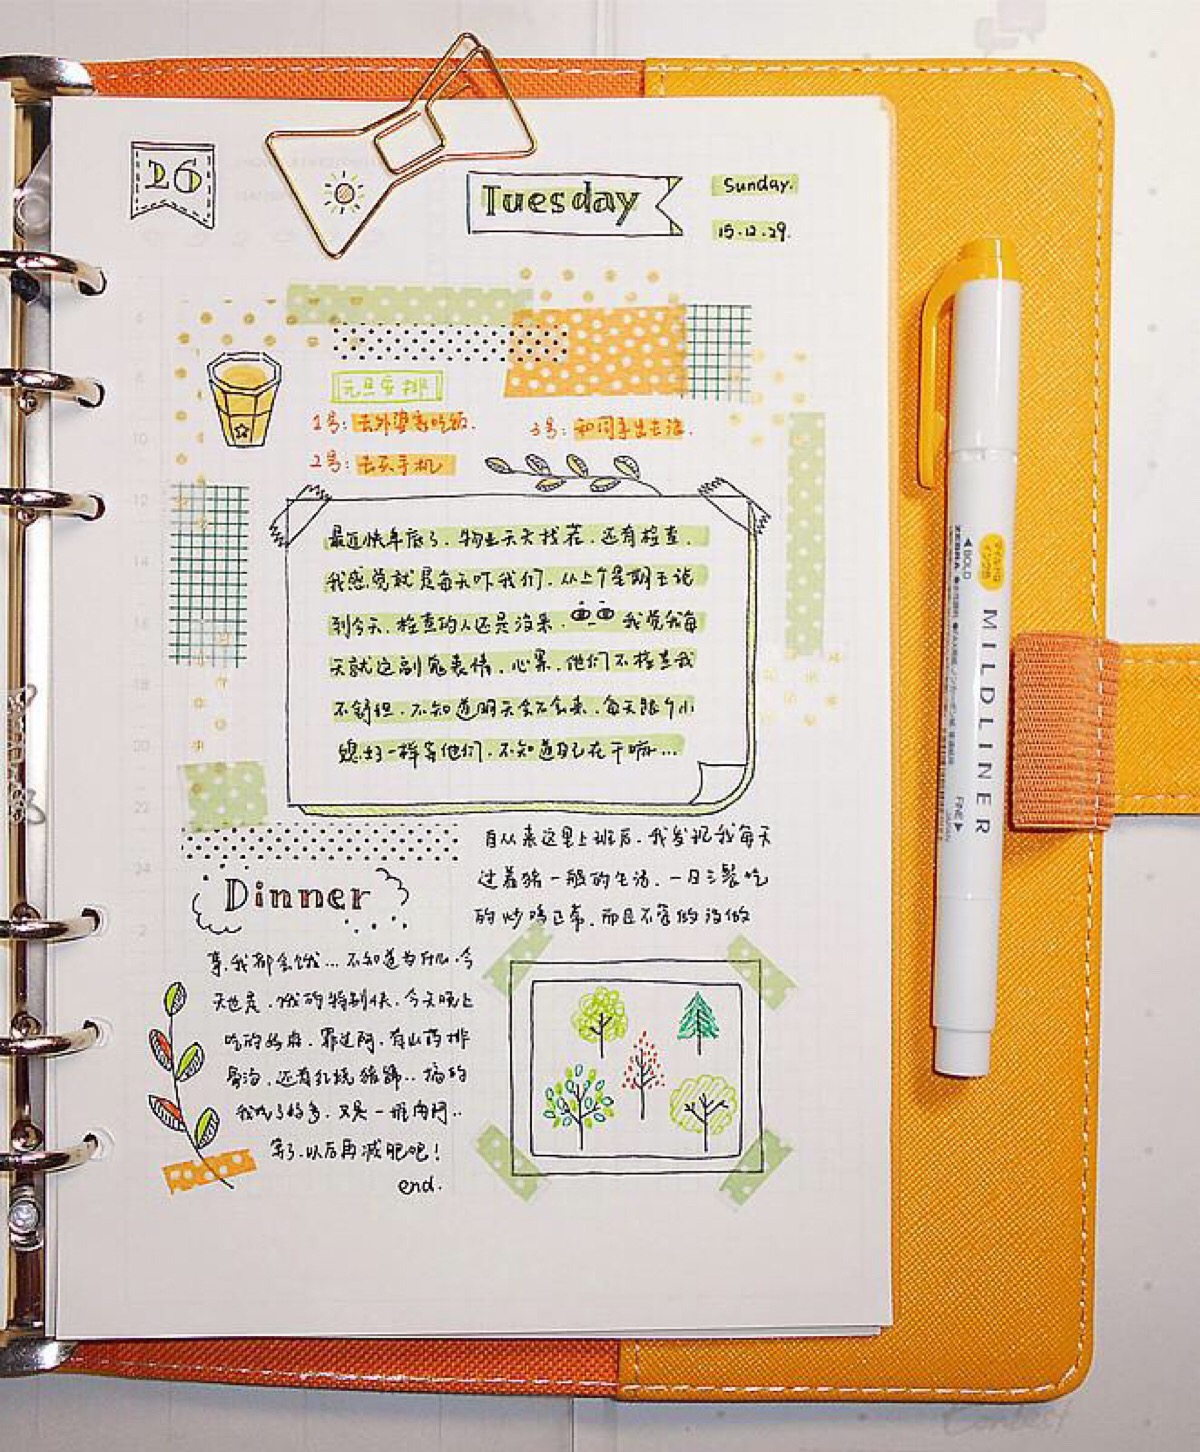 26
Tuesday
Sunday.
15.12.29.
元旦安排
1号：去外婆家吃饭.
3号：和同事出去浪.
2号：去买手机
最近快年底了.物业天天找茬.还有检查.
我感觉就是每天吓我们.从上个星期五说
到今天.检查的人还是没来.我觉我每
天就这副鬼表情.心累.他们不检查我
不舒坦.不知道明天会不会来.每天跟个小
媳妇一样等他们.不知道自己在干嘛...
自从来这里上班后.我发现我每天
过着猪一般的生活.一日三餐吃
的妙鸡正常.而且不管做没做
事.我都会饿...不知道为什么.今
天也是.饿的特别快.今天晚上
吃的好.罪过阿.有山药排
骨汤.还有红烧猪蹄..搞的
我吃了好多.又是一堆肉阿..
算了.以后再减肥吧！
end.
Dinner
6
8
10
12
14
16
18
20
22
24
2
ZEBRA
BOLD
MILDLINER
FINE